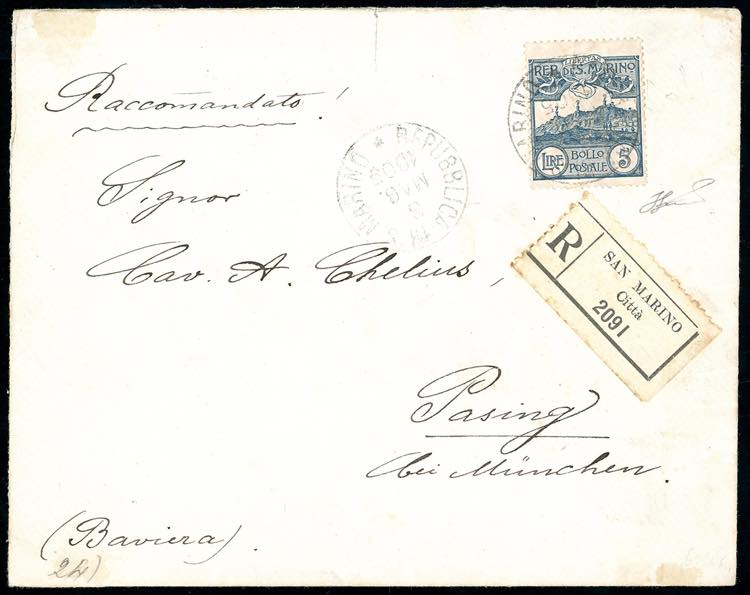 Raccomandato!
LIBERTAS
REP. DI S. MARINO
LIRE BOLLO POSTALE 5
REPUBBLICA
MAG
MARINO
Signor
Cav. A. Chelius,
R
SAN MARINO
Città
2091
Pasing
bei München.
(Baviera)
24)